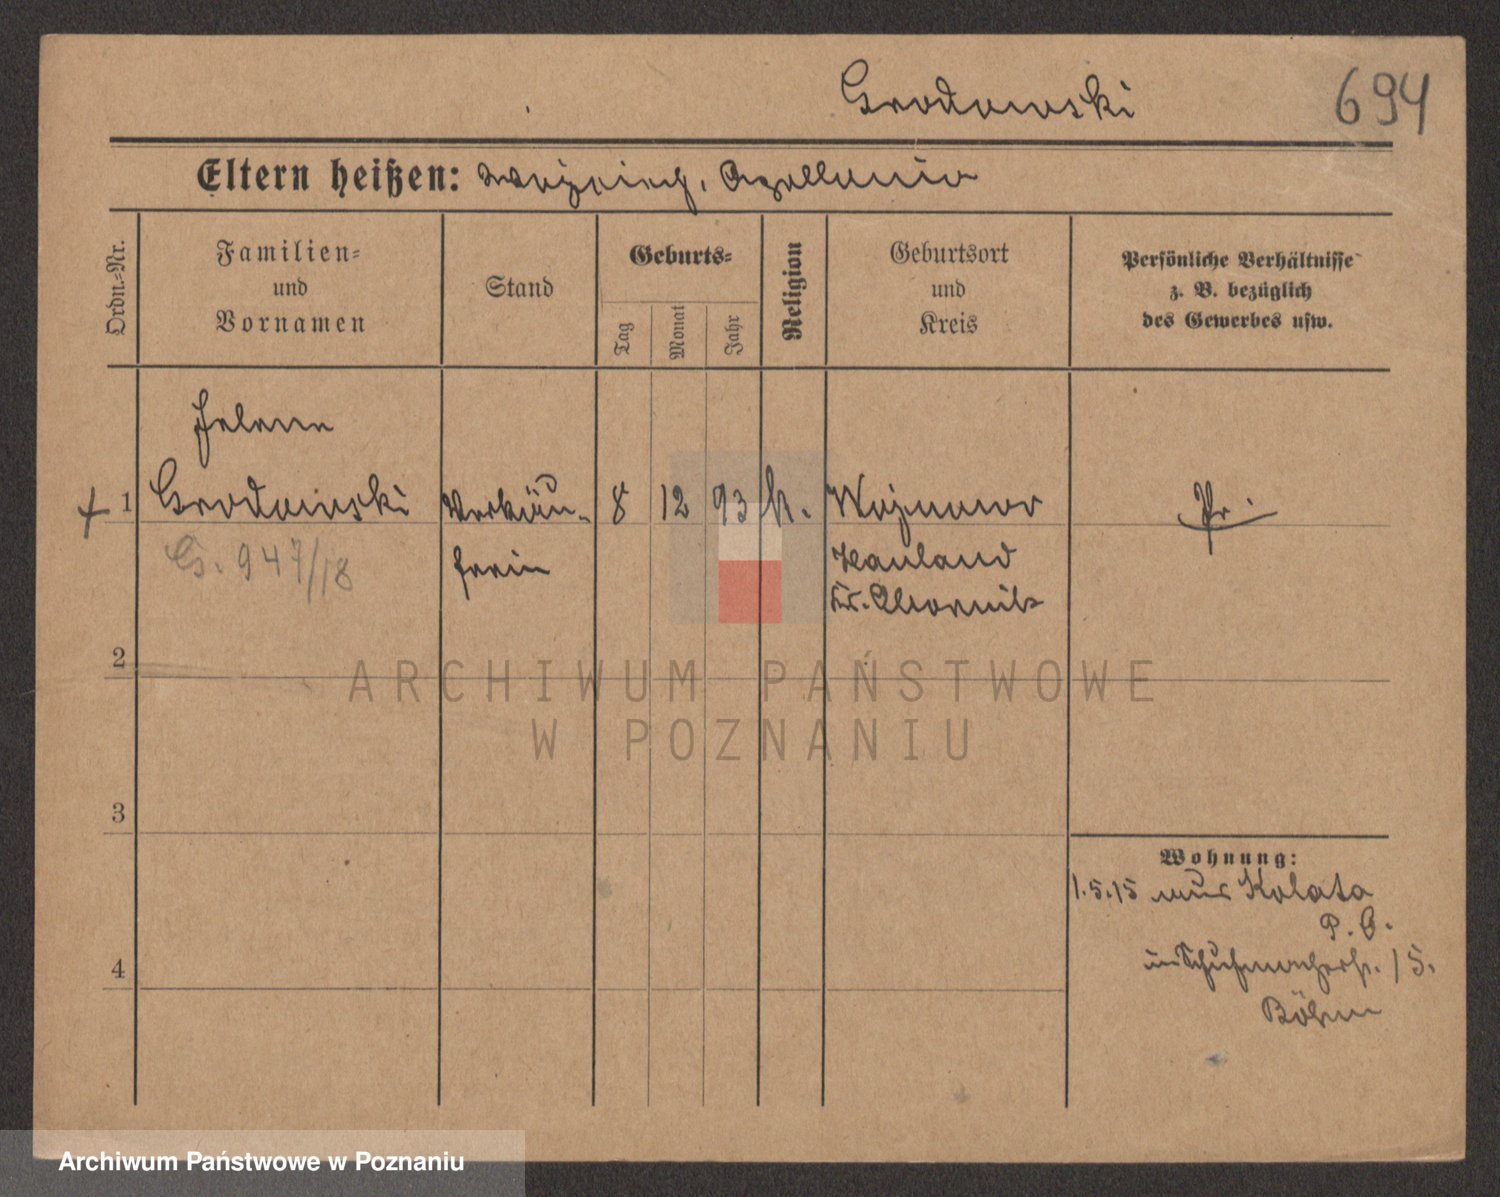 Grodowski
694
Eltern heißen: Wojciech, Apollonia
Ordn.-Nr.
Familien-
und
Vornamen
Stand
Geburts-
Tag
Monat
Jahr
Religion
Geburtsort
und
Kreis
Persönliche Verhältnisse
z. B. bezüglich
des Gewerbes usw.
Helene
1 Grodowski Verkäu- 8 12 93 k. Pr.
G. 947/18 ferin Hauland
Kr. Obornik
2
ARCHIWUM PAŃSTWOWE
W POZNANIU
3
Wohnung:
1.5.15 aus Kolata
P. O.
in Schuhmacherstr. 15.
4
Böhm
Archiwum Państwowe w Poznaniu